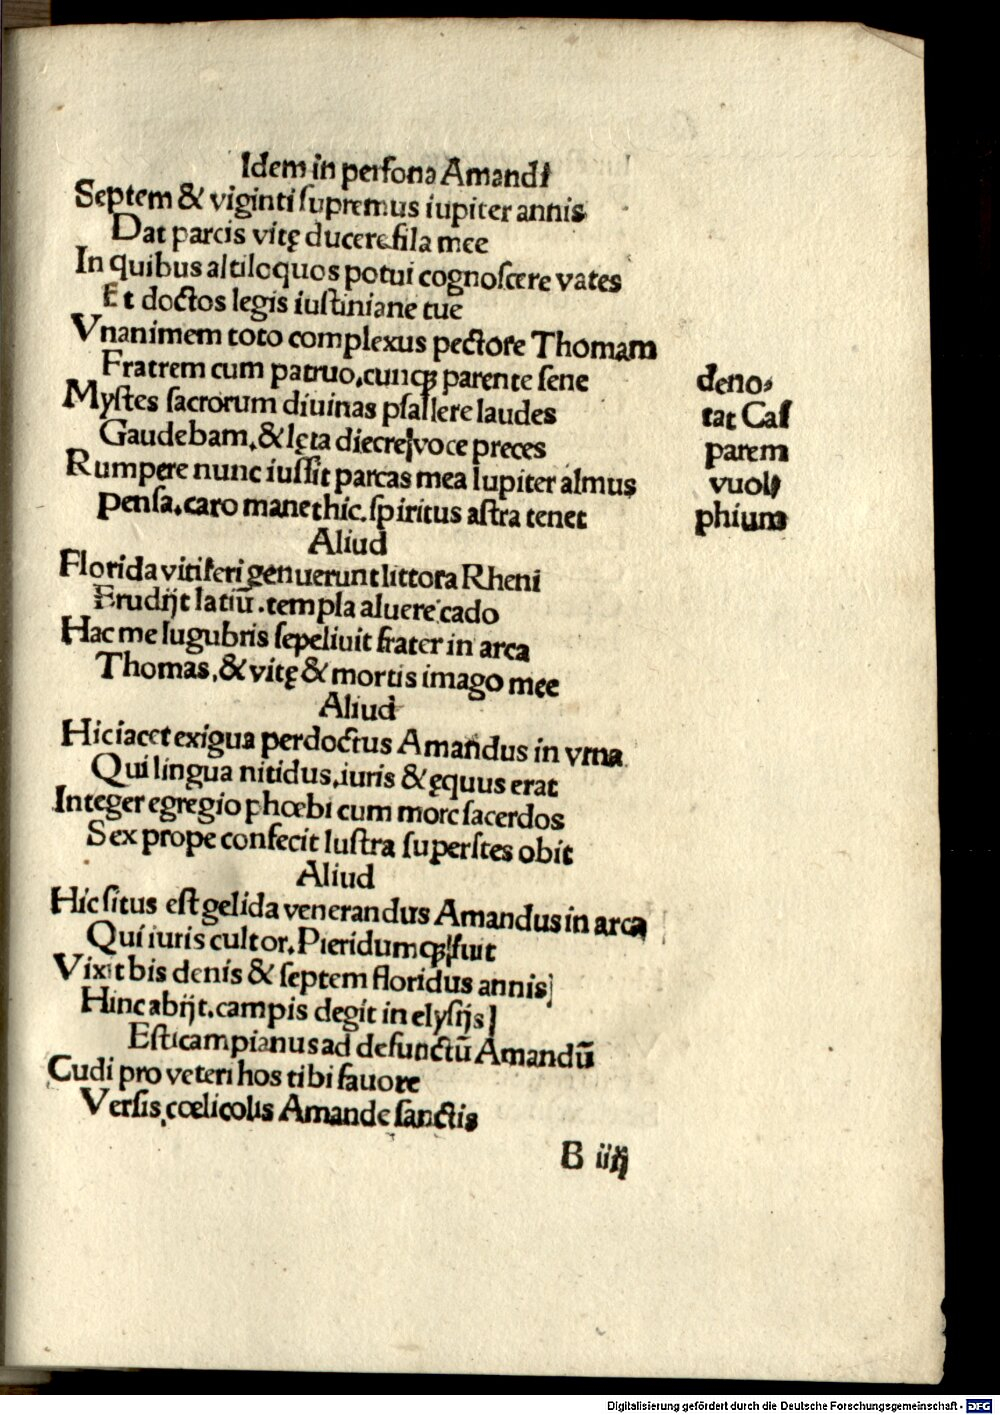 Idem in persona Amandi
Septem & viginti supremus iupiter annis
Dat parcis vitę ducere fila mee
In quibus altiloquos potui cognoscere vates
Et doctos legis iustiniane tue
Vnanimem toto complexus pectore Thomam
Fratrem cum patruo, cunqꝫ parente sene
Mystes sacrorum diuinas psallere laudes
Gaudebam, & lęta diecre voce preces
Rumpere nunc iussit parcas mea Iupiter almus
pensa. caro manet hic. spiritus astra tenet
deno-
tat Cas
parem
vuol,
phium
Aliud
Florida vitiferi genuerunt littora Rheni
Erudijt latiū. templa aluere cado
Hac me lugubris sepeliuit frater in arca
Thomas, & vitę & mortis imago mee
Aliud
Hic iacet exigua perdoctus Amandus in vrna
Qui lingua nitidus, iuris & ęquus erat
Integer egregio phœbi cum more sacerdos
Sex prope confecit lustra superstes obit
Aliud
Hic situs est gelida venerandus Amandus in arca
Qui iuris cultor, Pieridumqꝫ fuit
Vixit bis denis & septem floridus annis
Hinc abijt. campis degit in elysijs
Esticampianus ad defunctū Amandū
Cudi pro veteri hos tibi fauore
Versis, cœlicolis Amande sanctis
B iiij
Digitalisierung gefördert durch die Deutsche Forschungsgemeinschaft - DFG